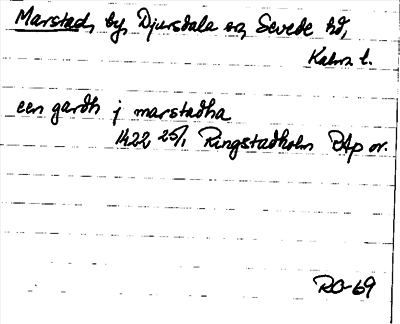 Marstad, by, Djursdala sn, Sevede hd,
Kalm. l.
een gardh j marstadha
1422 25/1 Ringstadholm RAp or.
RO-69